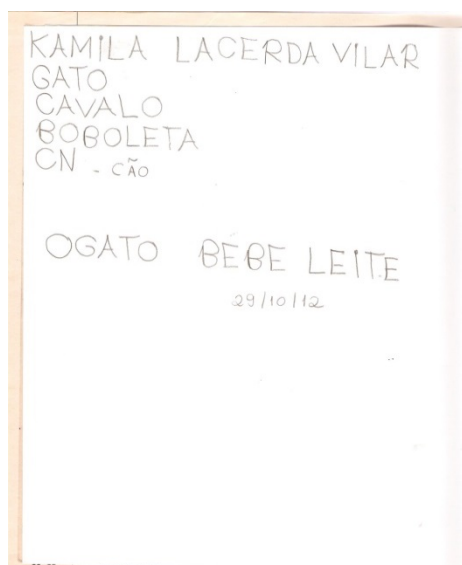 KAMILA LACERDA VILAR
GATO
CAVALO
BOBOLETA
CN - CÃO
OGATO BEBE LEITE
29/10/12